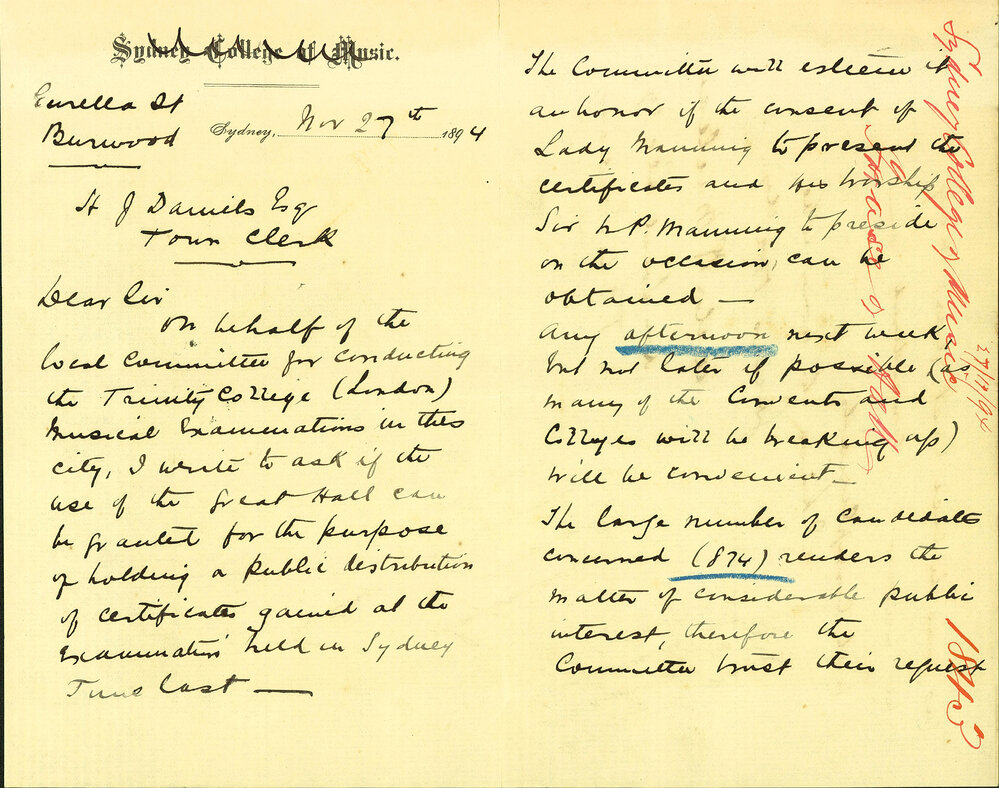 Sydney College of Music.
Eurella St
Burwood
Sydney, Nov 27th 1894
H J Daniels Esq
Town Clerk
Dear Sir
On behalf of the
local committee for conducting
the Trinity College (London)
Musical Examinations in this
city, I write to ask if the
use of the Great Hall can
be granted for the purpose
of holding a public distribution
of certificates gained at the
Examination held in Sydney
June last —
The Committee will esteem it
an honor if the consent of
Lady Manning to present the
certificates and His Worship
Sir W P. Manning to preside
on the occasion, can be
obtained —
Any afternoon next week
but not later if possible, (as
many of the Convents and
Colleges will be breaking up)
will be convenient —
The large number of candidates
concerned (874) renders the
matter of considerable public
interest, therefore the
Committee trust their request
Sydney College of Music
27/11/94
of Hall